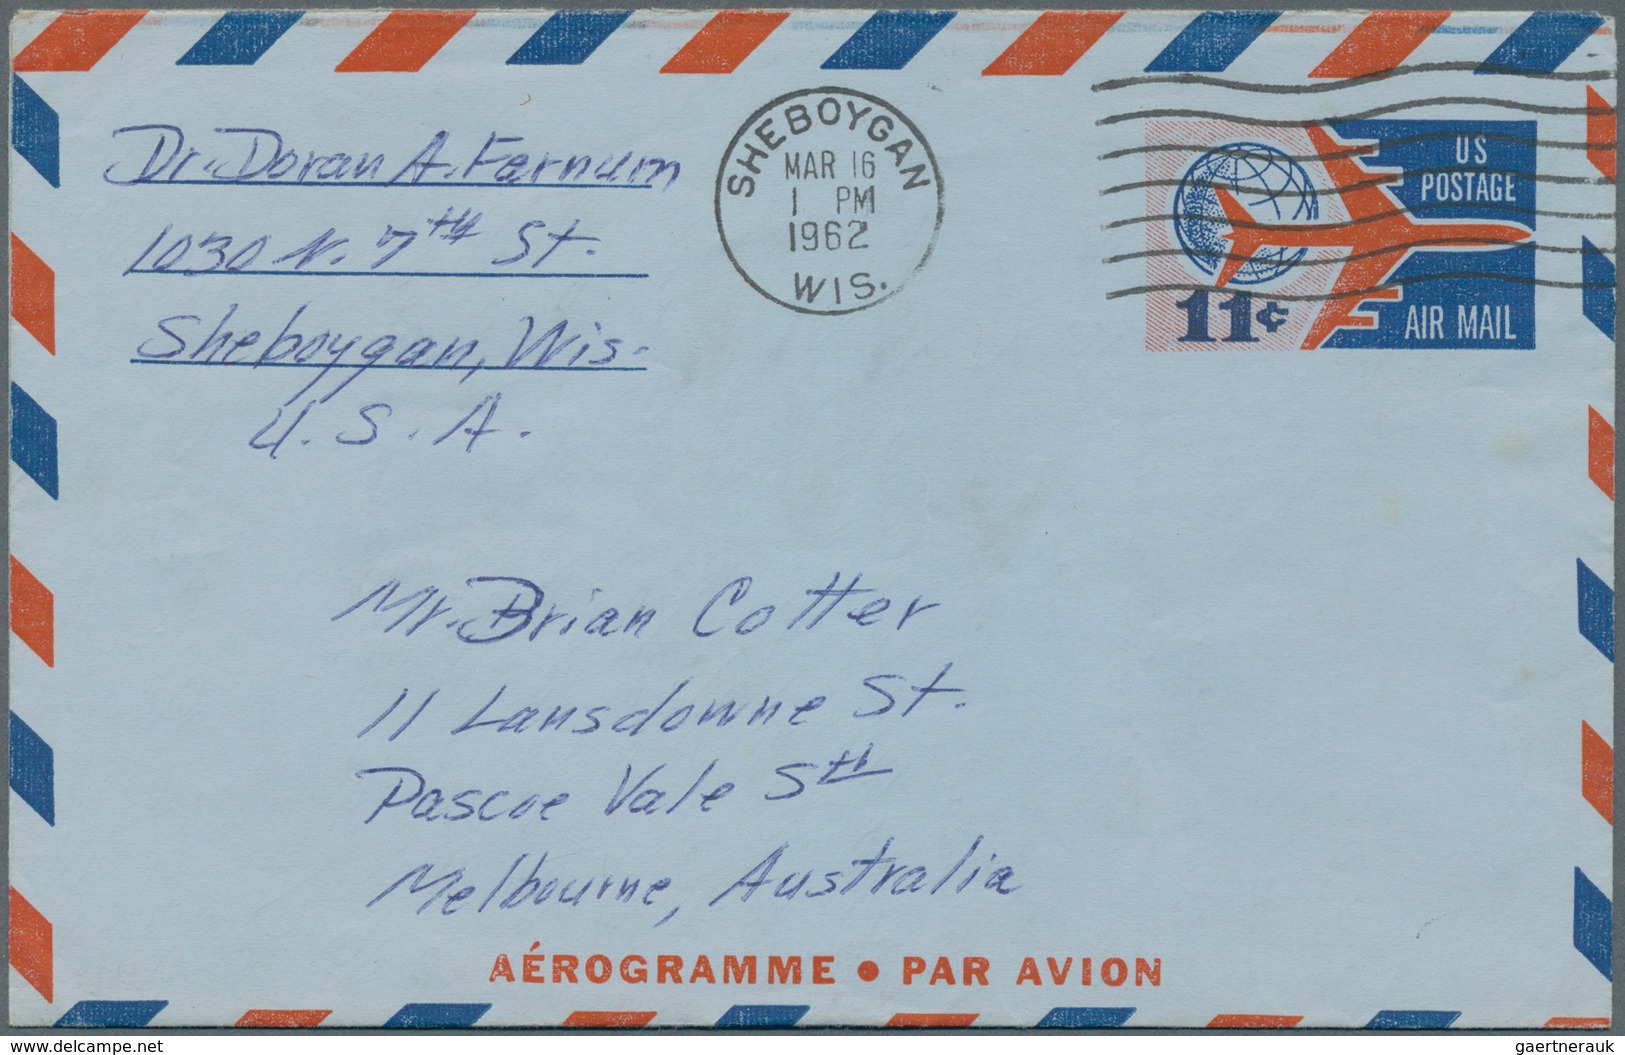 Dr. Doran A. Farnum
1030 N. 7th St.
Sheboygan, Wis.
U.S.A.
SHEBOYGAN
MAR 16
1 PM
1962
WIS.
US
POSTAGE
11¢
AIR MAIL
Mr. Brian Cotter
11 Lansdowne St.
Pascoe Vale Sth
Melbourne, Australia
AÉROGRAMME • PAR AVION
www.delcampe.com
gaertnerauk